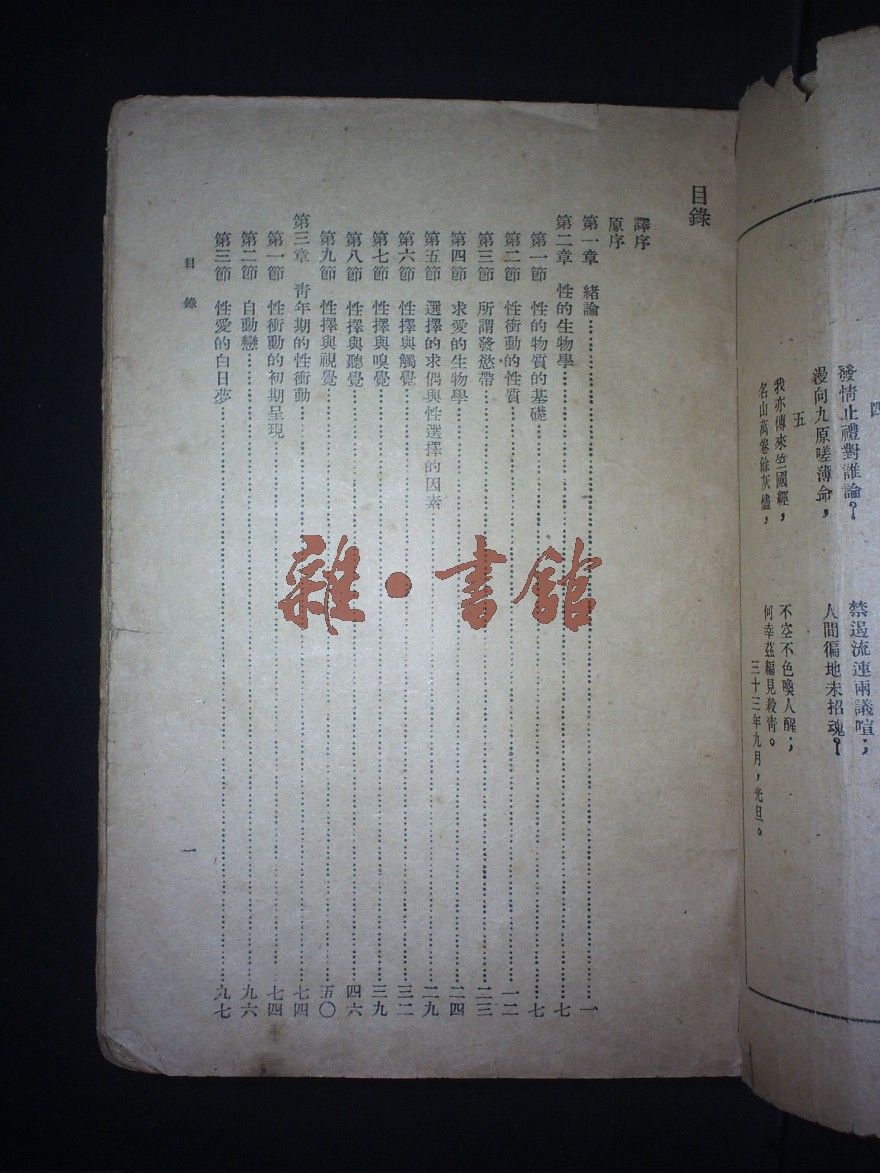 四
發情止禮對誰論？
禁遏流連兩議喧；
漫向九原嗟薄命，
人間徧地未招魂？
五
我亦傳來竺國經，
不空不色喚人醒；
名山萬卷餘灰燼，
何幸茲編見殺青。
三十三年九月，光旦。
目錄
譯序
原序
第一章 緒論……一
第二章 性的生物學……七
第一節 性的物質的基礎……七
第二節 性衝動的性質……一二
第三節 所謂發慾帶……二三
第四節 求愛的生物學……二四
第五節 選擇的求偶與性選擇的因素……二九
第六節 性擇與觸覺……三二
第七節 性擇與嗅覺……三九
第八節 性擇與聽覺……四六
第九節 性擇與視覺……五〇
第三章 靑年期的性衝動……七四
第一節 性衝動的初期呈現……七四
第二節 自動戀……九六
第三節 性愛的白日夢……九七
目錄
一
雜·書館